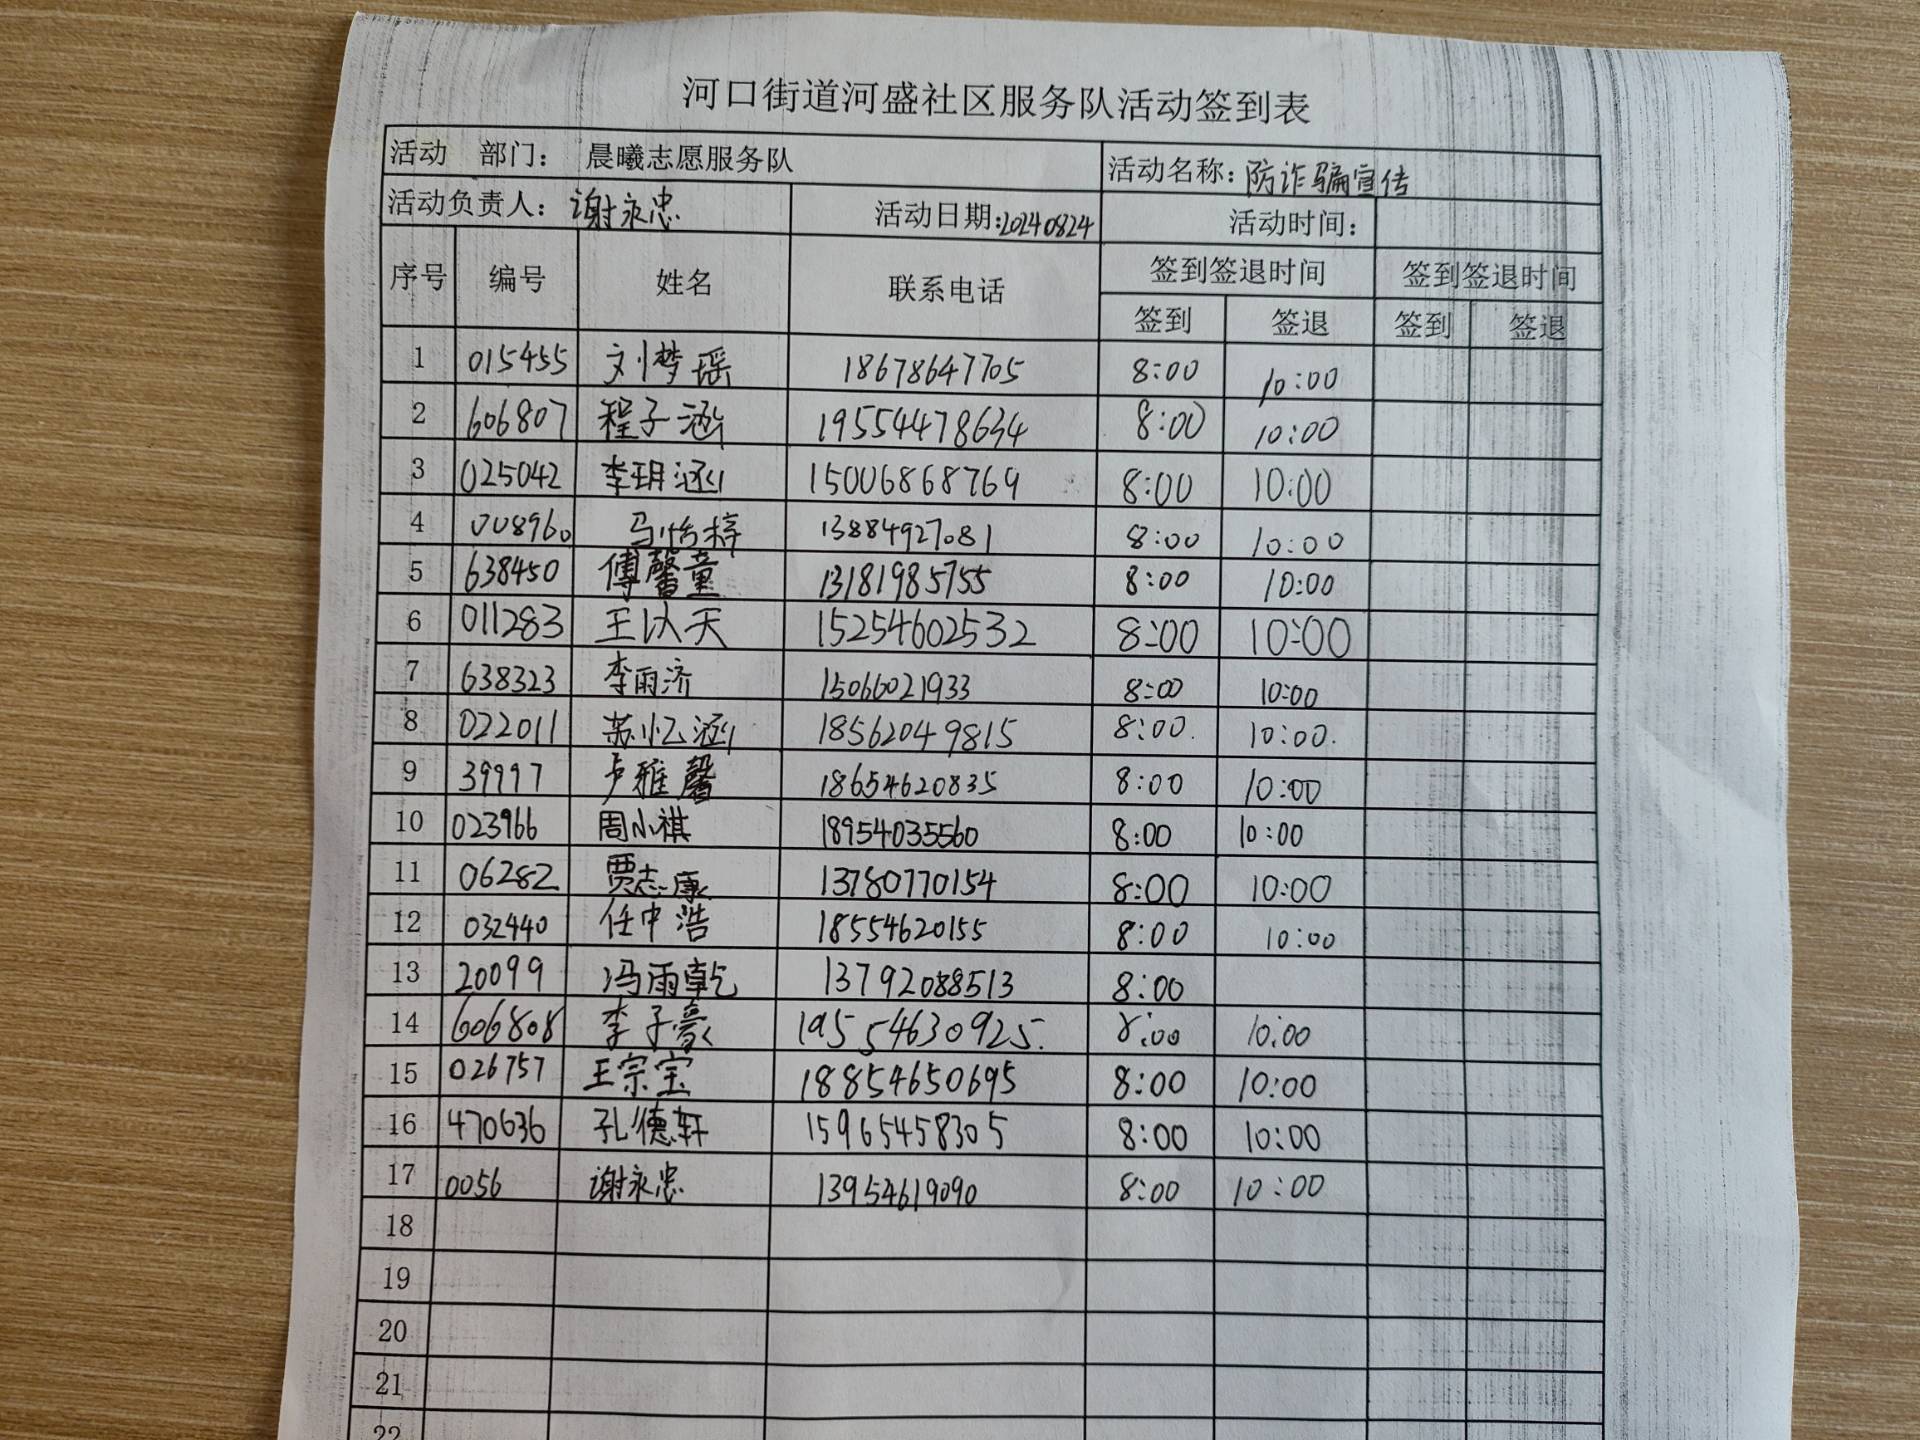 河口街道河盛社区服务队活动签到表
活动 部门： 晨曦志愿服务队 活动名称：防诈骗宣传
活动负责人：谢永忠 活动日期:20240824 活动时间：
序号 编号 姓名 联系电话 签到签退时间 签到签退时间
签到 签退 签到 签退
1 015455 刘梦瑶 18678647705 8:00 10:00
2 606807 程子涵 19554478634 8:00 10:00
3 025042 李玥涵 15006868769 8:00 10:00
4 008960 马怡梓 13884927081 8:00 10:00
5 638450 傅馨童 13181985755 8:00 10:00
6 011283 王以天 15254602532 8:00 10:00
7 638323 李雨济 15066021933 8:00 10:00
8 022011 苏忆涵 18562049815 8:00. 10:00.
9 39997 卢雅馨 18654620835 8:00 10:00
10 023966 周小祺 18954035560 8:00 10:00
11 06282 贾志康 13780770154 8:00 10:00
12 032440 任中浩 18554620155 8:00 10:00
13 20099 冯雨乾 13792088513 8:00
14 606808 李子豪 19554630925. 8:00 10:00
15 026757 王宗宝 18854650695 8:00 10:00
16 470636 孔德轩 15965458305 8:00 10:00
17 0056 谢永忠 13954619090 8:00 10:00
18
19
20
21
22